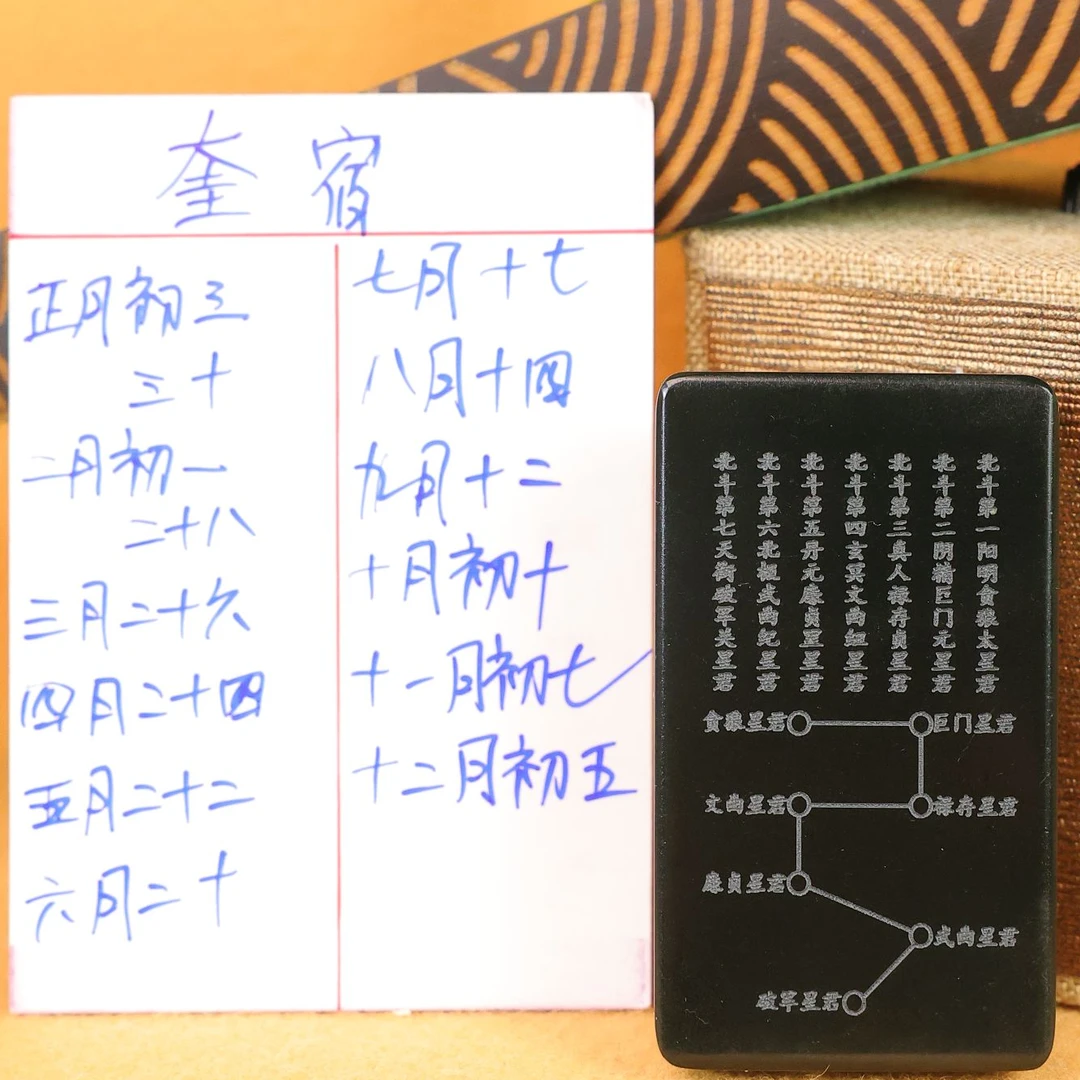 奎宿
正月初三
三十
二月初一
二十八
三月二十六
四月二十四
五月二十二
六月二十
七月十七
八月十四
九月十二
十月初十
十一月初七
十二月初五
北斗第一阳明贪狼太星君
北斗第二阴精巨门元星君
北斗第三真人禄存贞星君
北斗第四玄冥文曲纽星君
北斗第五丹元廉贞罡星君
北斗第六北极武曲纪星君
北斗第七天衝破军关星君
贪狼星君
巨门星君
文曲星君
禄存星君
廉贞星君
武曲星君
破军星君